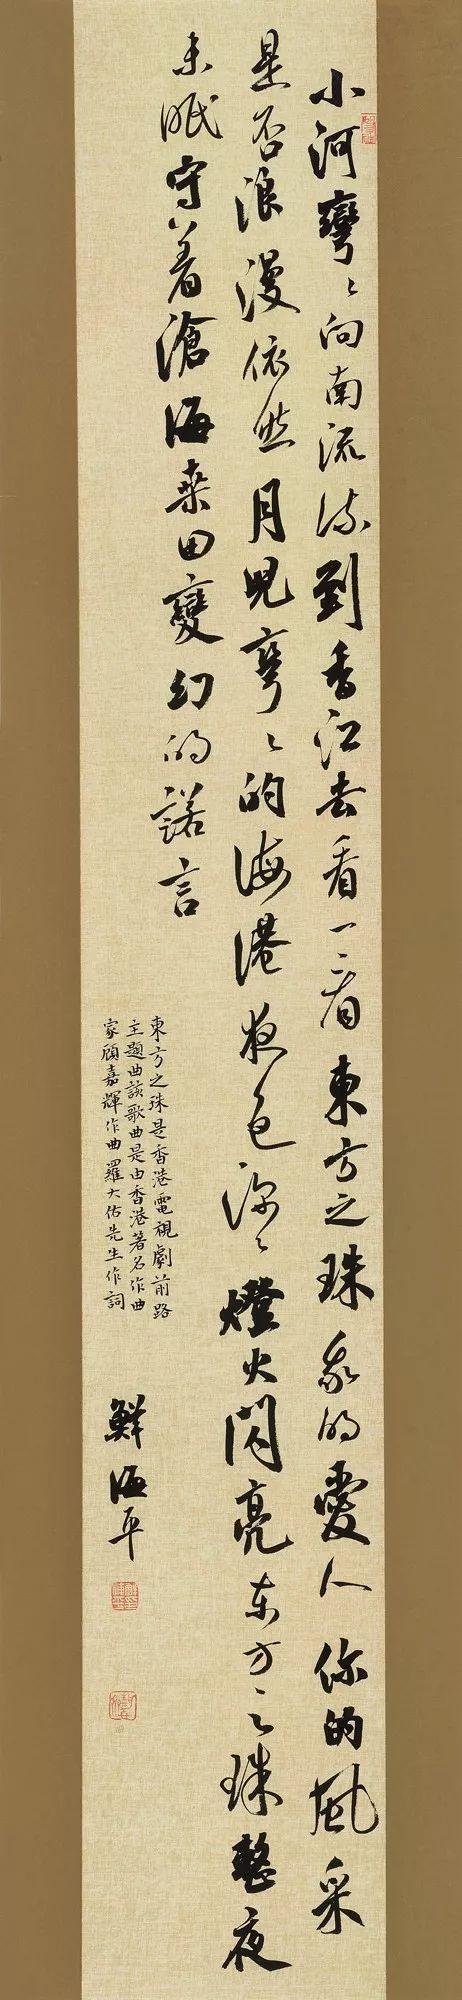 小河彎〻向南流流到香江去看一看東方之珠我的愛人你的風采
是否浪漫依然月兒彎〻的海港夜色深〻燈火閃亮东方之珠整夜
未眠守着滄海桑田變幻的諾言
東方之珠是香港電視劇前路
主題曲該歌曲是由香港著名作曲
家顧嘉輝作曲羅大佑先生作詞
鮮海平